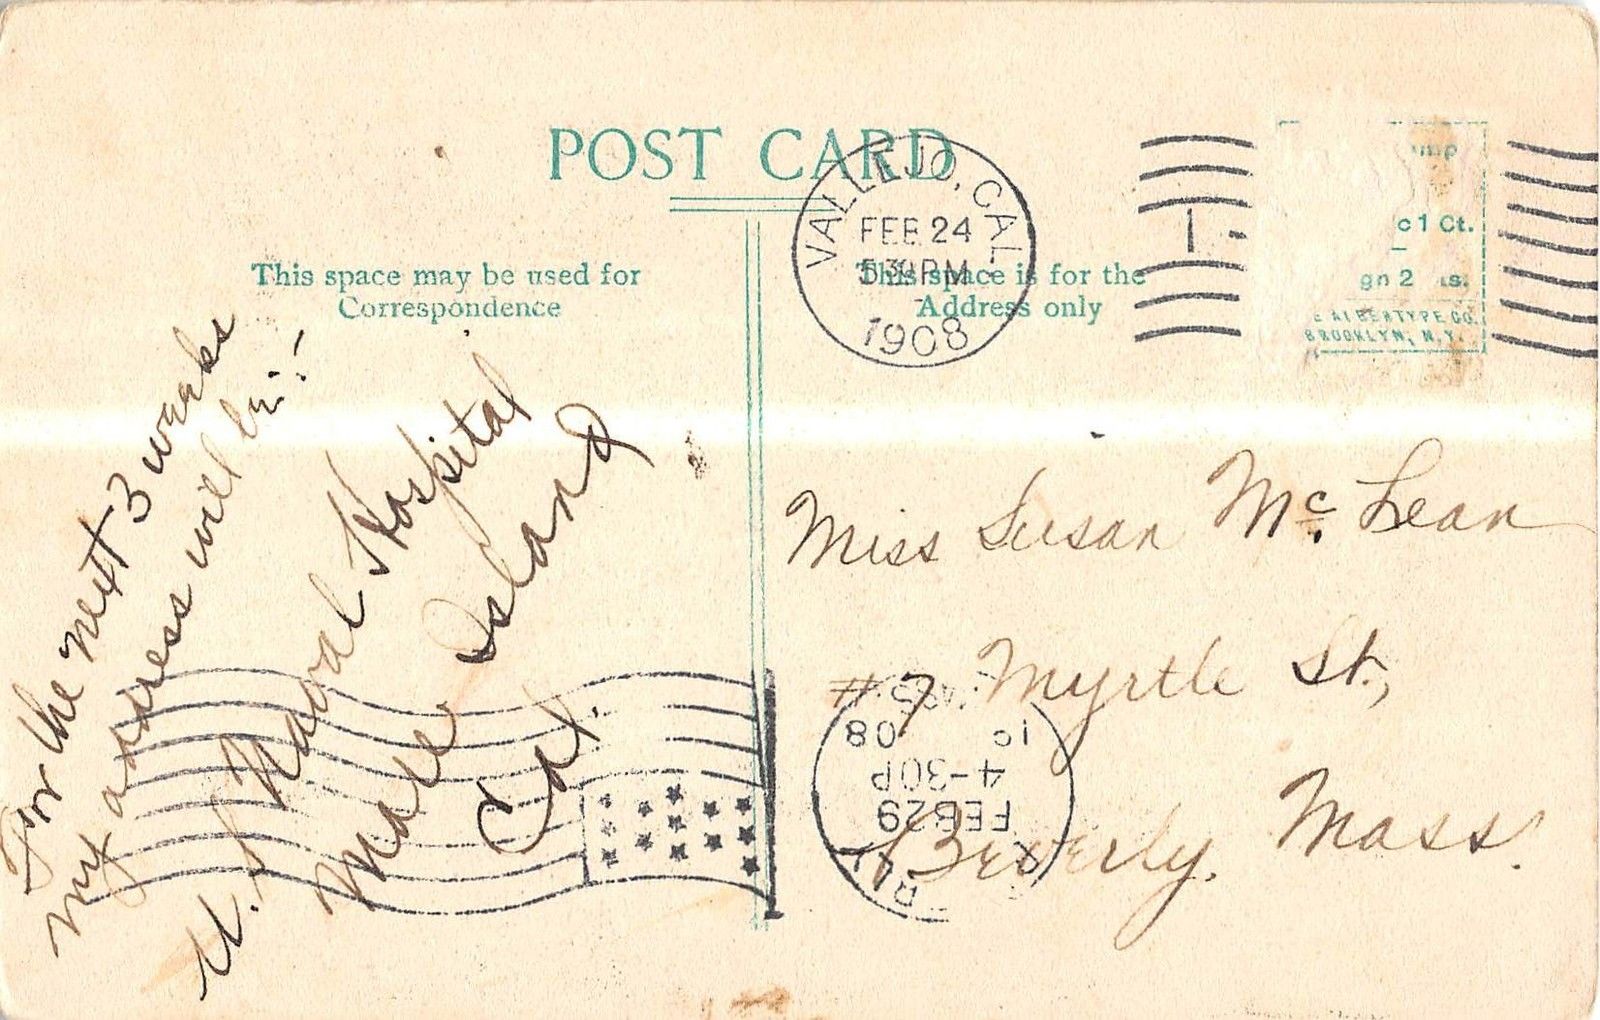 POST CARD
This space may be used for
Correspondence
This space is for the
Address only
VALLEJO, CAL.
FEB 24
530 PM
1908
1
c 1 Ct.
gn 2
ALBERTYPE CO.
BROOKLYN, N.Y.
For the next 3 weeks
my address will be:-
U.S. Naval Hospital
Mare Island
Cal.
Miss Susan Mc Lean
#7 Myrtle St.,
Beverly. Mass.
FEB 29
4-30P
08